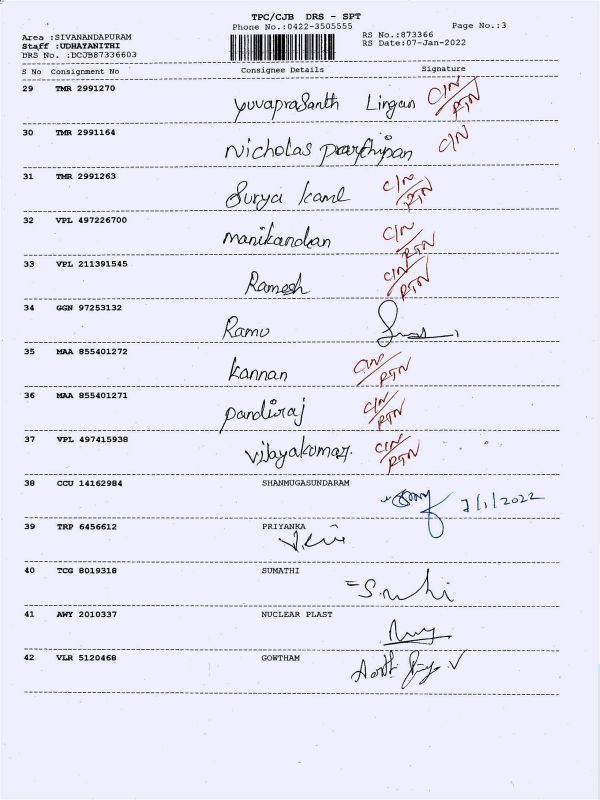 TPC/CJB DRS - SPT
Phone No.:0422-3505555 Page No.:3
Area :SIVANANDAPURAM RS No.:873366
Staff :UDHAYANITHI RS Date:07-Jan-2022
DRS No. :DCJB87336603
S No Consignment No Consignee Details Signature
29 TMR 2991270 Yuvaprasanth Lingan C/N RTN
30 TMR 2991164 Nicholas parthipan C/N
31 TMR 2991263 Surya kaml C/N RTN
32 VPL 497226700 manikandan C/N RTN
33 VPL 211391545 Ramesh C/N RTN
34 GGN 97253132 Ramu
35 MAA 855401272 kannan C/N RTN
36 MAA 855401271 pandiraj C/N RTN
37 VPL 497415938 vijayakumar. C/N RTN
38 CCU 14162984 SHANMUGASUNDARAM 7/1/2022
39 TRP 6456612 PRIYANKA
40 TCG 8019318 SUMATHI
41 AWY 2010337 NUCLEAR PLAST
42 VLR 5120468 GOWTHAM